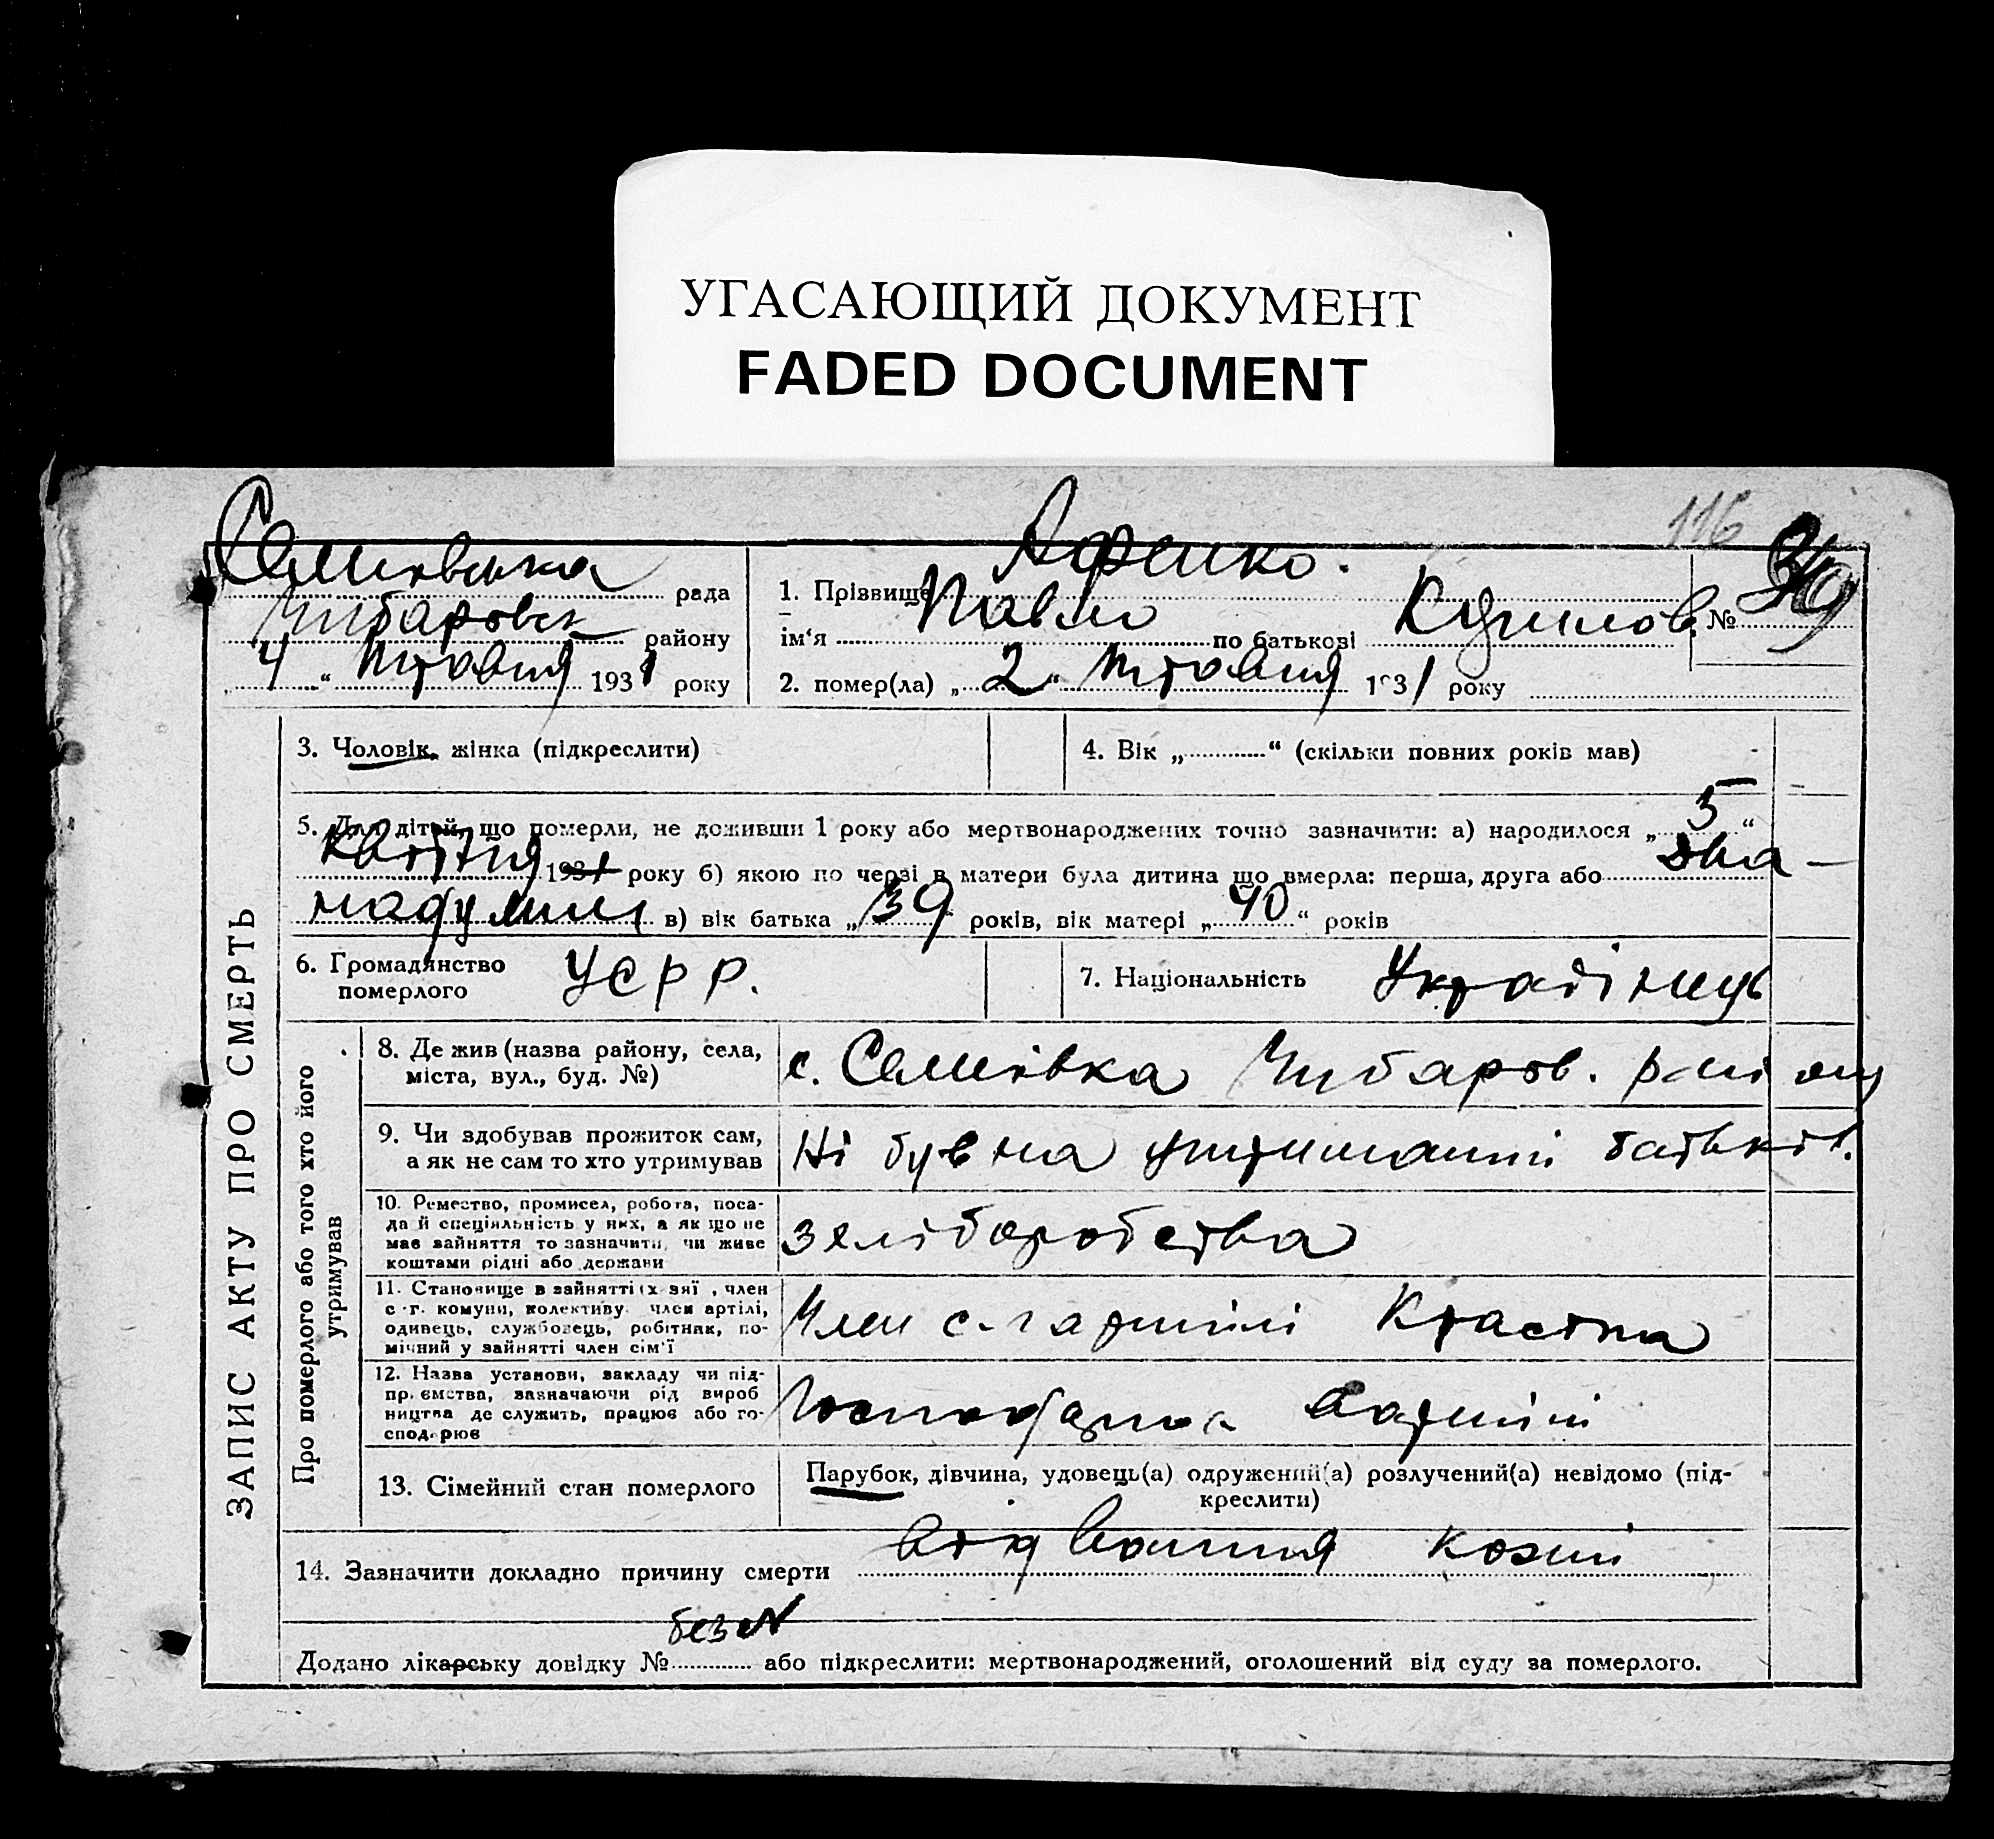 УГАСАЮЩИЙ ДОКУМЕНТ
FADED DOCUMENT
116
Семівська рада
Чубаровск району
4 " травня 1931 року
1. Прізвище
ім'я Павло по батькові Кирилов. № 39
2. помер(ла) „ 2 " травня 1931 року
3. Чоловік, жінка (підкреслити)
4. Вік „ " (скільки повних років мав)
5. Для дітей, що померли, не доживши 1 року або мертвонароджених точно зазначити: а) народилося „ 5 "
квітня 1931 року б) якою по черзі в матери була дитина що вмерла: перша, друга або два-
надцятий в) вік батька „ 39 " років, вік матері „ 40 " років
6. Громадянство
померлого УСРР.
7. Національність Українець
ЗАПИС АКТУ ПРО СМЕРТЬ
Про померлого або того хто його
утримував
8. Де жив (назва району, села,
міста, вул., буд. №)
с. Семівка Чубаров. району
9. Чи здобував прожиток сам,
а як не сам то хто утримував
Ні був на утриманні батьків.
10. Ремество, промисел, робота, поса-
да й спеціяльність у них, а як що не
має зайняття то зазначити, чи живе
коштами рідні або держави
хліборобства
11. Становище в зайнятті (х-зяї, член
с.-г. комуни, колективу. член артілі,
одивець, службовець, робітник, по-
мічний у зайнятті член сім'ї
Член с.-г артілі
12. Назва установи, закладу чи під-
пр. ємства, зазначаючи рід вироб
ництва де служить, працює або го-
сподарює
артілі
13. Сімейний стан померлого
Парубок, дівчина, удовець(а) одружений(а) розлучений(а) невідомо (під-
креслити)
14. Зазначити докладно причину смерти
Додано лікарську довідку № без № або підкреслити: мертвонароджений, оголошений від суду за померлого.